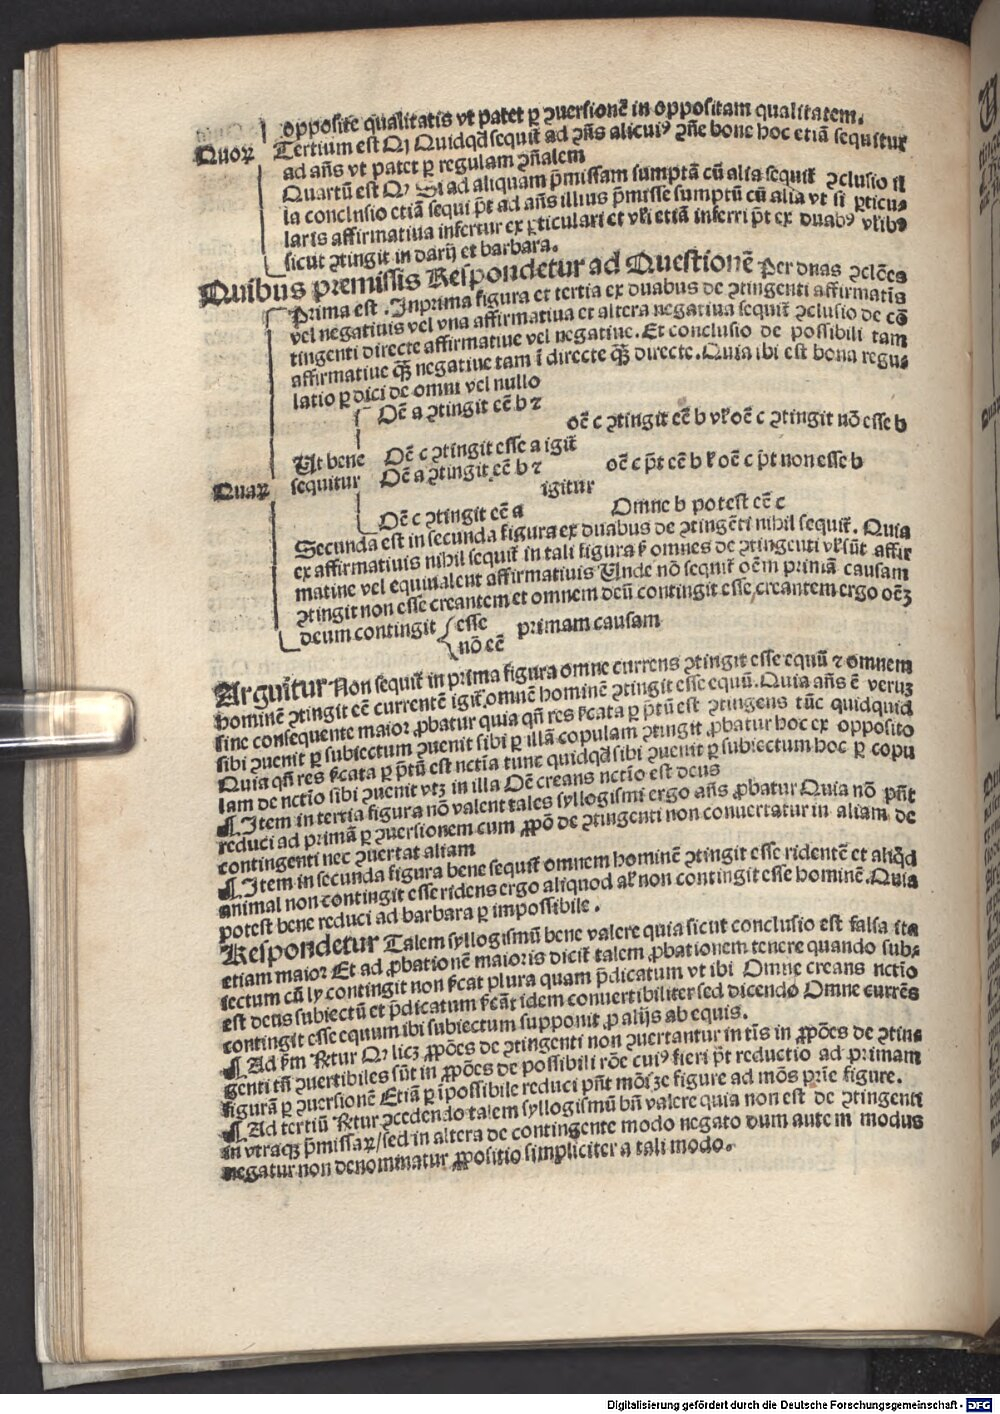 opposite qualitatis vt patet ꝑ ꝯuersionē in oppositam qualitatem.
Quoꝝ Tertium est Qꝫ Quidqd sequiť ad ꝯn̄s alicuiꝰ ꝯn̄e bone hoc etiā sequitur
ad an̄s vt patet ꝑ regulam ꝯn̄alem
Quartū est Qꝫ Si ad aliquam p̄missam sumptā cū alia sequiť ꝯclusio il
la conclusio etiā sequi p̄t ad an̄s illius p̄misse sumptū cū alia vt si ꝑticu⸗
laris affirmatiua infertur ex ꝑticulari et vľi etiā inferri p̄t ex duabꝰ vľibꝰ
sicut ꝯtingit in darij et barbara.
Quibus premissis Respondetur ad Questionē Per duas ꝯclōes
Prima est . In prima figura et tertia ex duabus de ꝯtingenti affirmatis
vel negatiuis vel vna affirmatiua et altera negatiua sequiť ꝯclusio de cō
tingenti directe affirmatiue vel negatiue. Et conclusio de possibili tam
affirmatiue qꝫ̄ negatiue tam ī directe qꝫ̄ directe. Quia ibi est bona regu⸗
latio ꝑ dici de omni vel nullo
Oē a ꝯtingit eē b ⁊
oē c ꝯtingit eē b vľ oē c ꝯtingit nō esse b
Oē c ꝯtingit esse a igiť
Ut bene
Oē a ꝯtingit eē b ⁊
oē c p̄t eē b ľ oē c p̄t non esse b
Quaꝝ sequitur
igitur
Oē c ꝯtingit eē a
Omne b potest eē c
Secunda est in secunda figura ex duabus de ꝯtingēti nihil sequiť. Quia
ex affirmatiuis nihil sequiť in tali figura ſꝫ omnes de ꝯtingenti vľ sūt affir
matiue vel equiualent affirmatiuis Unde nō sequiť oēm primā causam
ꝯtingit non esse creantem et omnem deū contingit esse creantem ergo oēꝫ
deum contingit esse primam causam
nō eē
Arguitur Non sequiť in prima figura omne currens ꝯtingit esse equū ⁊ omnem
hominē ꝯtingit eē currentē igiť omnē hominē ꝯtingit esse equū. Quia an̄s ē veruꝫ
sine consequente maior ꝓbatur quia qn̄ res ſcata ꝑ p̄tū est ꝯtingens tūc quidquid
sibi ꝯuenit ꝑ subiectum ꝯuenit sibi ꝑ illā copulam ꝯtingit ꝓbatur hoc ex opposito
Quia qn̄ res ſcata ꝑ p̄tū est nctīa tunc quidqd sibi ꝯuenit ꝑ subiectum hoc ꝑ copu
lam de nctīo sibi ꝯuenit vtꝫ in illa Oē creans nctīo est deus
¶ Item in tertia figura nō valent tales syllogismi ergo an̄s ꝓbatur Quia nō pn̄t
reduci ad primā ꝑ ꝯuersionem cum ꝓpō de ꝯtingenti non conuertatur in aliam de
contingenti nec ꝯuertat aliam
¶ Item in secunda figura bene sequiť omnem hominē ꝯtingit esse ridentē et aliqd
animal non contingit esse ridens ergo aliquod aľ non contingit esse hominē. Quia
potest bene reduci ad barbara ꝑ impossibile .
Respondetur Talem syllogismū bene valere quia sicut conclusio est falsa ita
etiam maior Et ad ꝓbationē maioris diciť talem ꝓbationem tenere quando sub⸗
iectum cū ly contingit non ſcat plura quam p̄dicatum vt ibi Omne creans nctīo
est deus subiectū et p̄dicatum ſcāt idem conuertibiliter sed dicendo Omne currēs
contingit esse equum ibi subiectum supponit ꝓ alijs ab equis.
¶ Ad ſm Rṛtur Qꝫ licꝫ ꝓpōes de ꝯtingenti non ꝯuertantur in tīs in ꝓpōes de ꝯtin⸗
genti tn̄ ꝯuertibiles sūt in ꝓpōes de possibili rōe cuiꝰ fieri p̄t reductio ad primam
figurā ꝑ ꝯuersionē Etiā ꝑ īpossibile reduci pn̄t mōi ꝫe figure ad mōs prīe figure.
¶ Ad tertiū Rṛtur ꝯcedendo talem syllogismū bn̄ valere quia non est de ꝯtingenti
in vtraqꝫ p̄missaꝝ/sed in altera de contingente modo negato dum autem modus
negatur non denominatur ꝓpositio simpliciter a tali modo.
Digitalisierung gefördert durch die Deutsche Forschungsgemeinschaft - DFG